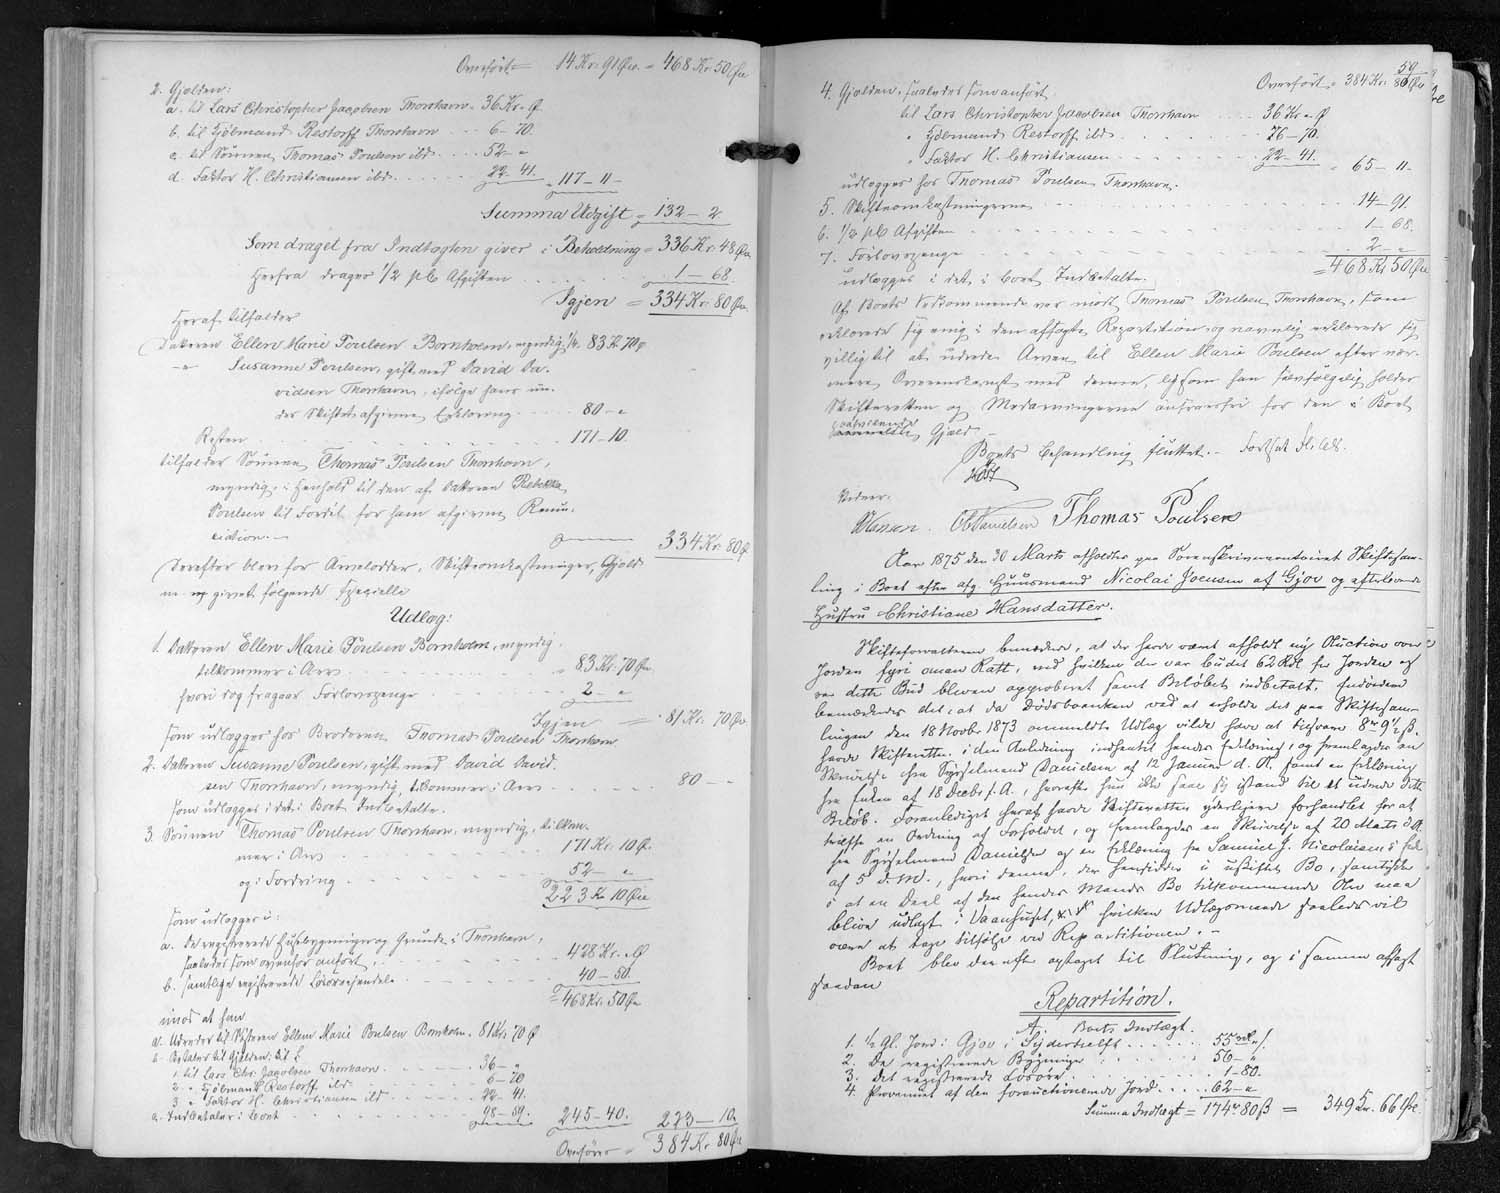 Overført = 14 Kr. 91 Øre = 468 Kr. 50 Øre
2. Gjælden:
a. til Lars Christopher Jacobsen Thorshavn. 36 Kr. " Ø
b. til Kjøbmand Restorff Thorshavn 6-70.
c. til Sønnen Thomas Poulsen ibd. 52-"
d. Faktor H. Christiansen ibd. 22-41. = 117-11-
Summa Udgift = 132-2
Som draget fra Indtægten giver i Beholdning = 336 Kr. 48 Øre
Herfra drages 1/2 pCt Afgiften 1-68.
Igjen = 334 Kr. 80 Øre
Heraf tilfalder
Datteren Ellen Marie Poulsen Bornholm, myndig 1/4. 83 Kr 70 Ø
-"- Susanne Poulsen, gift med David Da-
vidsen Thorshavn, ifølge hans un-
der Skiftet afgivne Erklæring 80-"
Resten 171-10.
tilfalder Sønnen Thomas Poulsen Thorshavn,
myndig, i Henhold til den af Datteren Rebekka
Poulsen til Fordel for ham afgivne Renun-
ciation.- 334 Kr. 80 Ø
Derefter blev for Arvelodder, Skifteomkostninger, Gjæld
m. v. givet følgende specielle
Udlæg:
1. Datteren Ellen Marie Poulsen Bornholm, myndig,
tilkommer i Arv 83 Kr. 70 Øre
hvori dog fragaar Forlovspenge 2-"
Igjen = 81 Kr. 70 Øre
som udlægges hos Broderen Thomas Poulsen Thorshavn
2. Datteren Susanne Poulsen, gift med David David-
sen Thorshavn, myndig, tilkommer i Arv 80-
som udlægges i det i Boet Indbetalte.
3. Sønnen Thomas Poulsen Thorshavn, myndig, tilkom-
mer i Arv 171 Kr. 10 Ø.
og i Fordring 52-"
223 Kr 10 Øre
som udlægges i:
a. De registrerede Huusbygninger og Grunde i Thorshavn,
saaledes som ovenfor anført 428 Kr. " Ø
b. samtlige registrerede Løsøreeffecter 40-50.
= 468 Kr. 50 Øre
imod at han
a. Udreder til Søsteren Ellen Marie Poulsen Bornholm. 81 Kr. 70 Ø
b. Betaler til Gjælden:
1. til Lars Chr. Jacobsen Thorshavn 36-"
2. " Kjøbmand Restorff ibd 6-70
3. " Faktor H. Christiansen ibd 22-41.
c. Indbetaler i Boet 98-59. 245-40. 223-10.
Overføres = 384 Kr. 80 Ø
59
Overført = 384 Kr. 80 Øre
4. Gjælden, saaledes som anført
til Lars Christopher Jacobsen Thorshavn 36 Kr. " Ø
" Kjøbmand Restorff ibd. 6-70.
" Faktor H. Christiansen 22-41. = 65-11-
udlægges hos Thomas Poulsen Thorshavn.
5. Skifteomkostningerne 14-91.
6. 1/2 pCt Afgiften 1-68.
7. Forlovspenge 2-"
udlægges i det i Boet Indbetalte. = 468 Kr. 50 Øre
Af Boets Vedkommende var mødt Thomas Poulsen Thorshavn, som
erklærede sig enig i den affattede Repartition, og navnlig erklærede sig
villig til at udrede Arven til Ellen Marie Poulsen efter nær-
mere Overenskomst med denne, ligesom han selvfølgelig holder
Skifteretten og Medarvingerne ansvarsfri for den i Boet
Gjæld -
Boets Behandling sluttet.-
Vidner:
Thomas Poulsen
Aar 1875 den 30 Marts afholdtes paa Sorenskrivercontoiret Skiftesam-
ling i Boet efter afg. Huusmand Nicolai Joensen af Gjov og efterlevende
Hustru Christiane Hansdatter.
Skifteforvalteren bemærkede, at der havde været afholdt ny Auction over
Jorden hvori man Ratt, ved hvilken der var budet 62 Rdl for Jorden og
var dette Bud bleven approberet samt Beløbet indbetalt. Endvidere
bemærkedes det, at da Dødsboenken ved at erholde det paa Skiftesam-
lingen den 18 Novbr 1873 ommeldte Udlæg vilde have at tilsvare 8 9 1/2 ß.
havde Skifteretten i den Anledning indhentet hendes Erklæring, og fremlagdes en
Skrivelse fra Sysselmand Danielsen af 12 Januar d. A. samt en Erklæring
fra Enken af 18 Decbr f. A., hvorefter hun ikke saae sig istand til at udrede dette
Beløb. Foranlediget heraf havde Skifteretten yderligere forhandlet for at
træffe en Ordning af Forholdet, og fremlagdes en Skrivelse af 20 Marts d. A.
fra Sysselmand Danielsen og en Erklæring fra Samuel J. Nicolaisen
af 5 d. M., hvori denne, der hensidder i uskiftet Bo, samtykte
i at en Deel af den hendes Mands Bo tilkommende Arv maa
blive udlagt i Vaanhuset, hvilken Udlægsmaade saaledes vil
være at tage tilfølge ved Repartitionen.-
Boet blev derefter optaget til Slutning, og i samme afsagt
saadan
Repartition.
A. Boets Indtægt.
1. 1/2 Gl. Jord i Gjov i Syderhelft 55 rd " ß.
2. De registrerede Bygninger 56-"
3. Det registrerede Løsøre 1-80.
4. Provenuet af den forauctionerede Jord 62-"
Summa Indtægt = 174 rd 80 ß = 349 Kr. 66 Øre